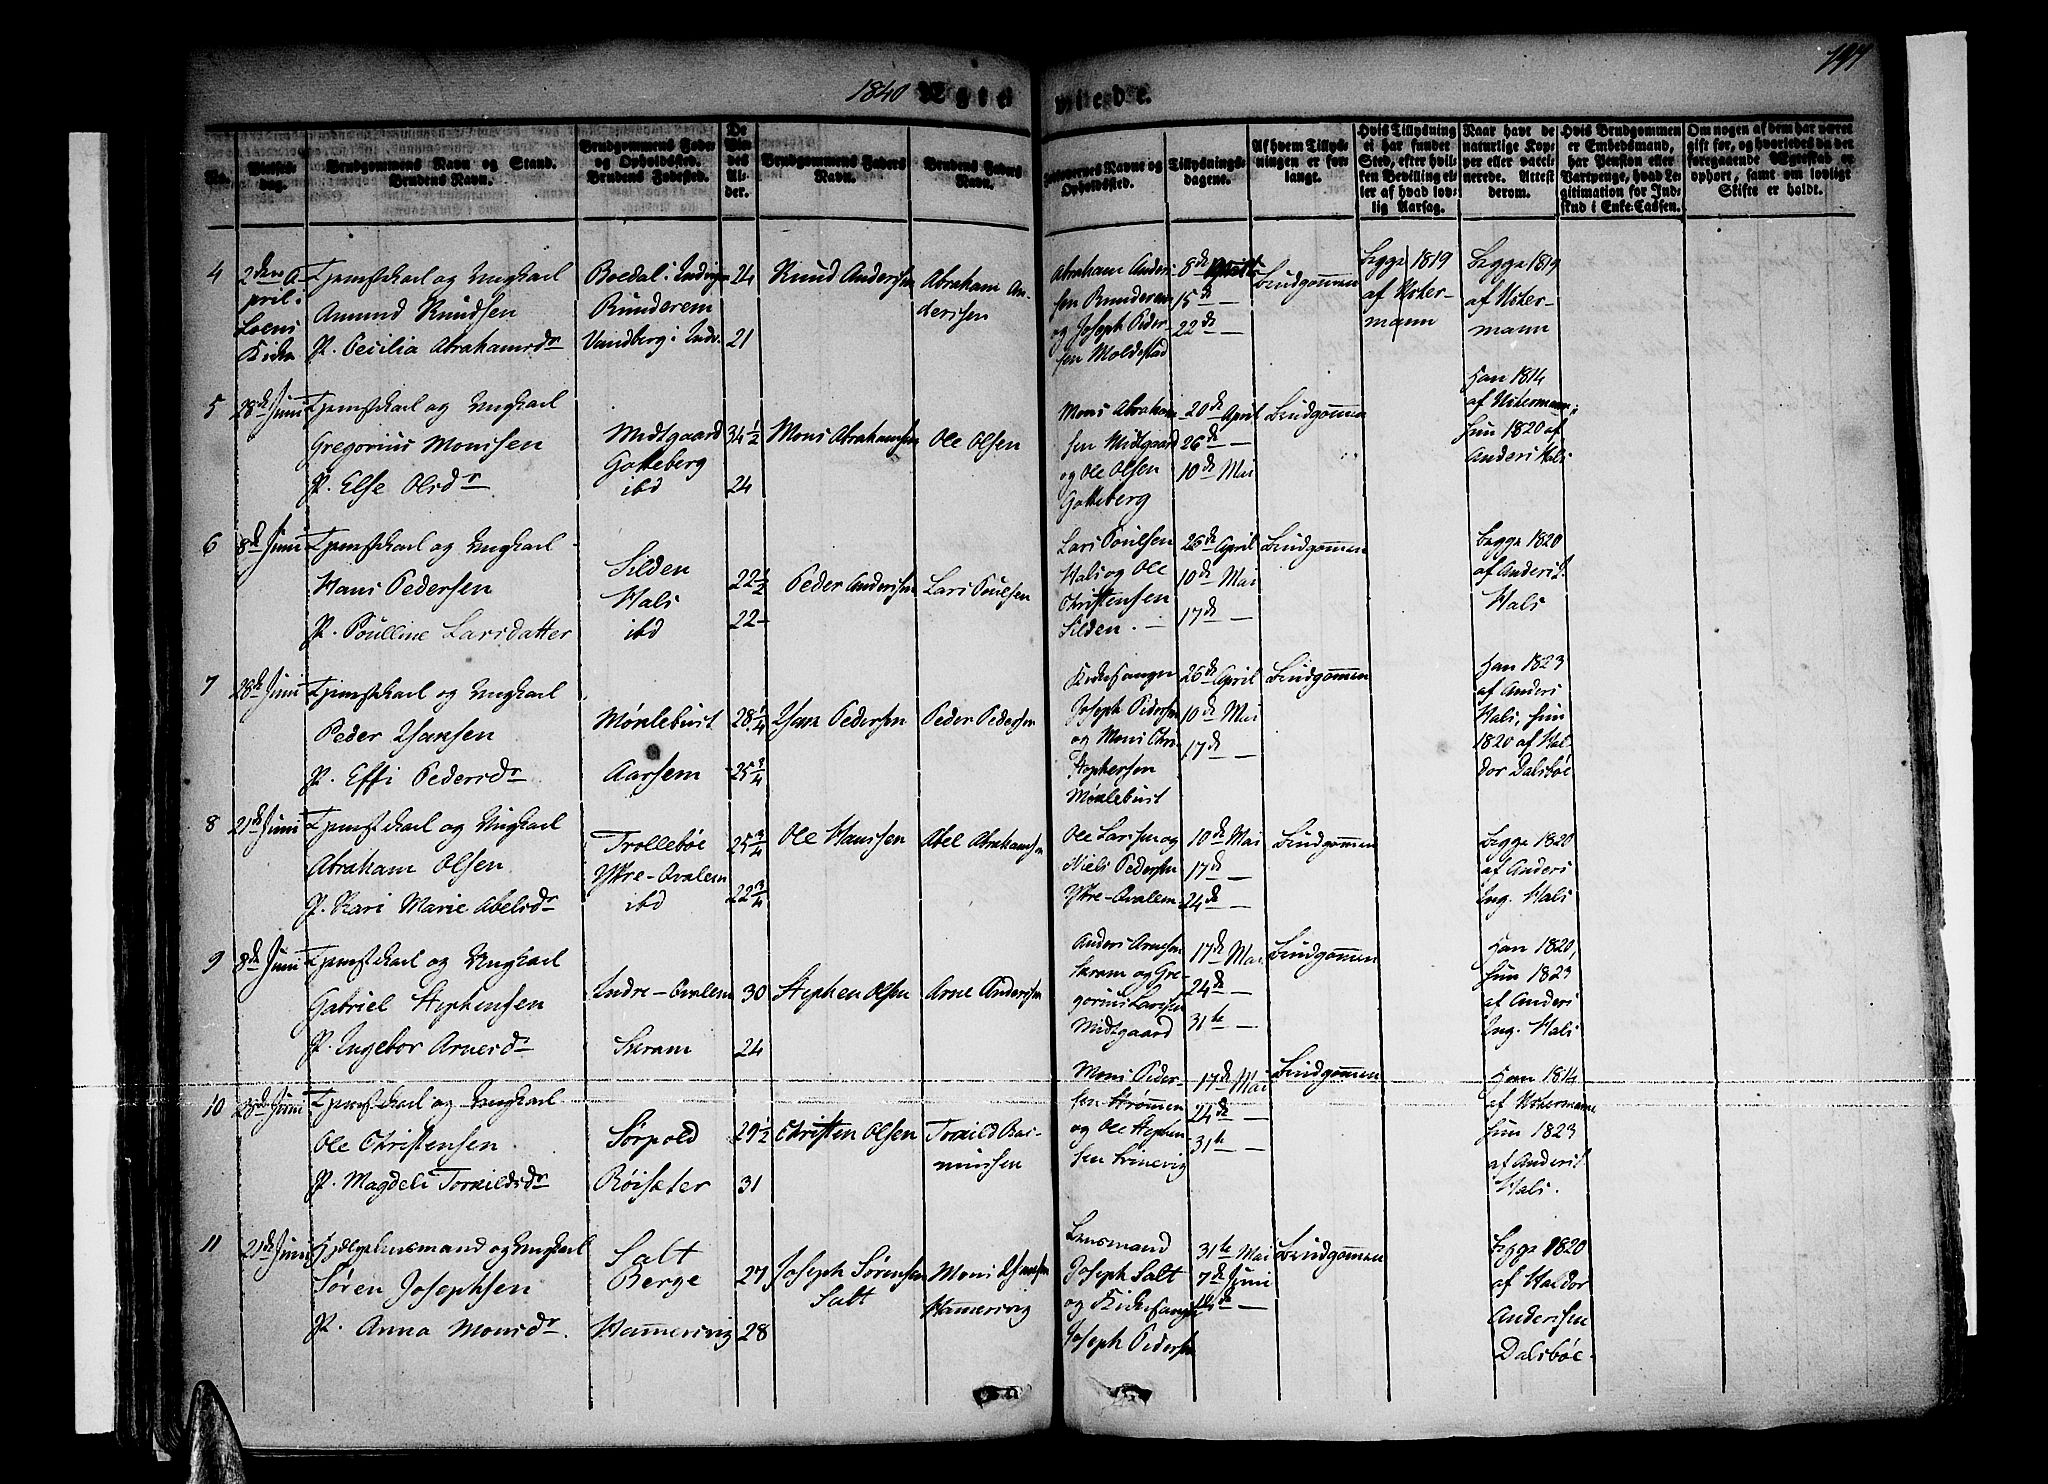 1840
Ægteviede.
No.
Vielses-
dag.
Brudgommens Navn og Stand.
Brudens Navn.
Brudgommens Føde-
og Opholdssted.
Brudens Fødested.
De
Vie-
des
Al-
der.
Brudgommens Faders
Navn.
Brudens Faders
Navn.
Forlovernes Navne og
Opholdssted.
Tillysnings-
dagene.
Af hvem Tillys-
ningen er for-
langt.
Hvis Tillysning
ei har fundet
Sted, efter hvil-
ken Bevilling el-
ler af hvad lov-
lig Aarsag.
Naar havt de
naturlige Kop-
per eller vacci-
nerede. Attest
derom.
Hvis Brudgommen
er Embedsmand,
har Pension eller
Vartpenge, hvad Le-
gitimation for Ind-
skud i Enke-Cassen.
Om nogen af dem har været
gift før, og hvorledes da det
foregaaende Ægteskab er
ophørt, samt om lovligt
Skifte er holdt.
4
2den A-
pril i
Kirke
og Ungkarl
Amund Knudsen
P. Cecilia Abrahamsdr
Runderem
24
21
Knud Andersen
Abraham An-
dersen
Abraham Ander-
sen Runderem
og Joseph Peder-
sen Moldestad
8de
15de —
22de —
Brudgommen
Begge 1819
af Ustermann
Begge 1819
af Uster-
mann
5
28de Juni
Tjenestekarl og Ungkarl
Gregorius Monssen
P. Else Olsdr
Midtgaard
Gotteberg
ibd
34 1/2
24
Mons Abrahamsen
Ole Olsen
Mons Abraham-
sen Midtgaard
og Ole Olsen
Gotteberg
20de April
26de —
10de Mai
Brudgommen
Han 1814
af Ustermann,
Hun 1820 af
Anders Hals
6
8de Juni
Tjenestekarl og Ungkarl
Hans Pedersen
P. Poulline Larsdatter
Silden
Hals
ibd
22 1/2
22
Peder Andersen
Lars Poulsen
Lars Poulsen
Hals og Ole
Christensen
Silden.
26de April
10de Mai
17de —
Brudgommen
Begge 1820
af Anders I.
Hals
7
28de Juni
Tjenestekarl og Ungkarl
Peder Hansen
P. Effi Pedersdr
Møklebust
Aarsem
28 1/4
25 3/4
Hans Pedersen
Peder Pedersen
Kirkesanger
Joseph Pedersen
og Mons Chri-
stophersen
Møklebust
26de April
10de Mai
17de —
Brudgommen
Han 1823
af Anders
Hals, Hun
1820 af Hal-
dor Dalsbøe
8
21de Juni
Tjenestekarl og Ungkarl
Abraham Olsen
P. Kari Marie Abelsdr
Trollebøe
Yttre-Qvalem
ibd
25 3/4
22 3/4
Ole Hanssen
Abel Abrahamsen
Ole Larsen og
Niels Pedersen
Yttre-Qvalem
10de Mai
17de —
24de —
Brudgommen
Begge 1820
af Anders
Ing. Hals
9
8de Juni
Tjenestekarl og Ungkarl
Gabriel Stephensen
P. Ingebor Arnesdr
Indre-Qvalem
Skram
30
24
Stephen Olsen
Arne Andersen
Anders Arnesen
Skram og Gre-
gorius Larssen
Midtgaard
17de Mai
24de —
31te —
Brudgommen
Han 1820,
Hun 1823
af Anders
Ing. Hals
10
28de Juni
Tjenestekarl og Ungkarl
Ole Christensen
P. Magdeli Torkildsdr
Sørpold
Røisæter
29 1/2
31
Christen Olsen
Torkild Ras-
mussen
Mons Peder-
sen Strømmen
og Ole Stephen-
sen
17de Mai
24de —
31te —
Brudgommen
Han 1814
af Ustermann
Hun 1823
af Anders I.
Hals.
11
21de Juni
og Ungkarl
Søren Josephsen
P. Anna Monsdr.
Salt
Berge
Hammersvig
27
28
Joseph Sørensen
Salt
Mons
Hammersvig
Lensmand
Joseph Salt
og Kirkesanger
Joseph Pedersen
31te Mai
7de Juni
14de —
Brudgommen
Begge 1820
af Haldor
Anderssen
Dalsbøe